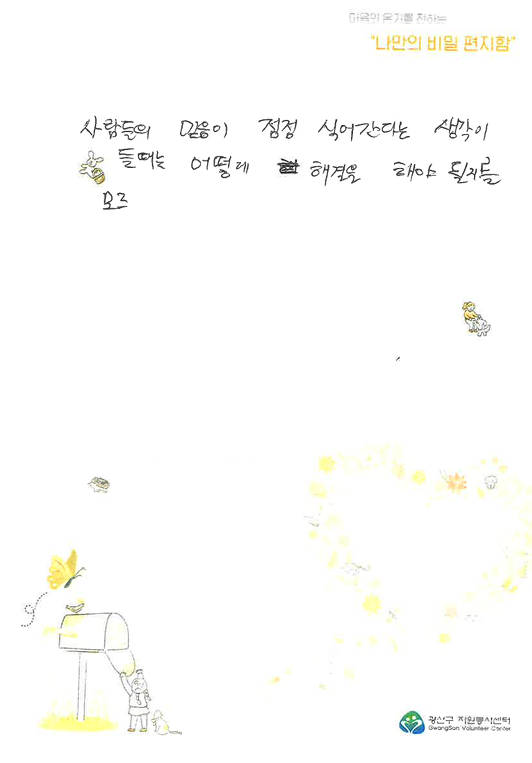 마음의 온기를 전하는
"나만의 비밀 편지함"
사람들의 믿음이 점점 식어간다는 생각이
들때는 어떻게 해결을 해야 될지를
모르
광산구 자원봉사센터
GwangSan Volunteer Center